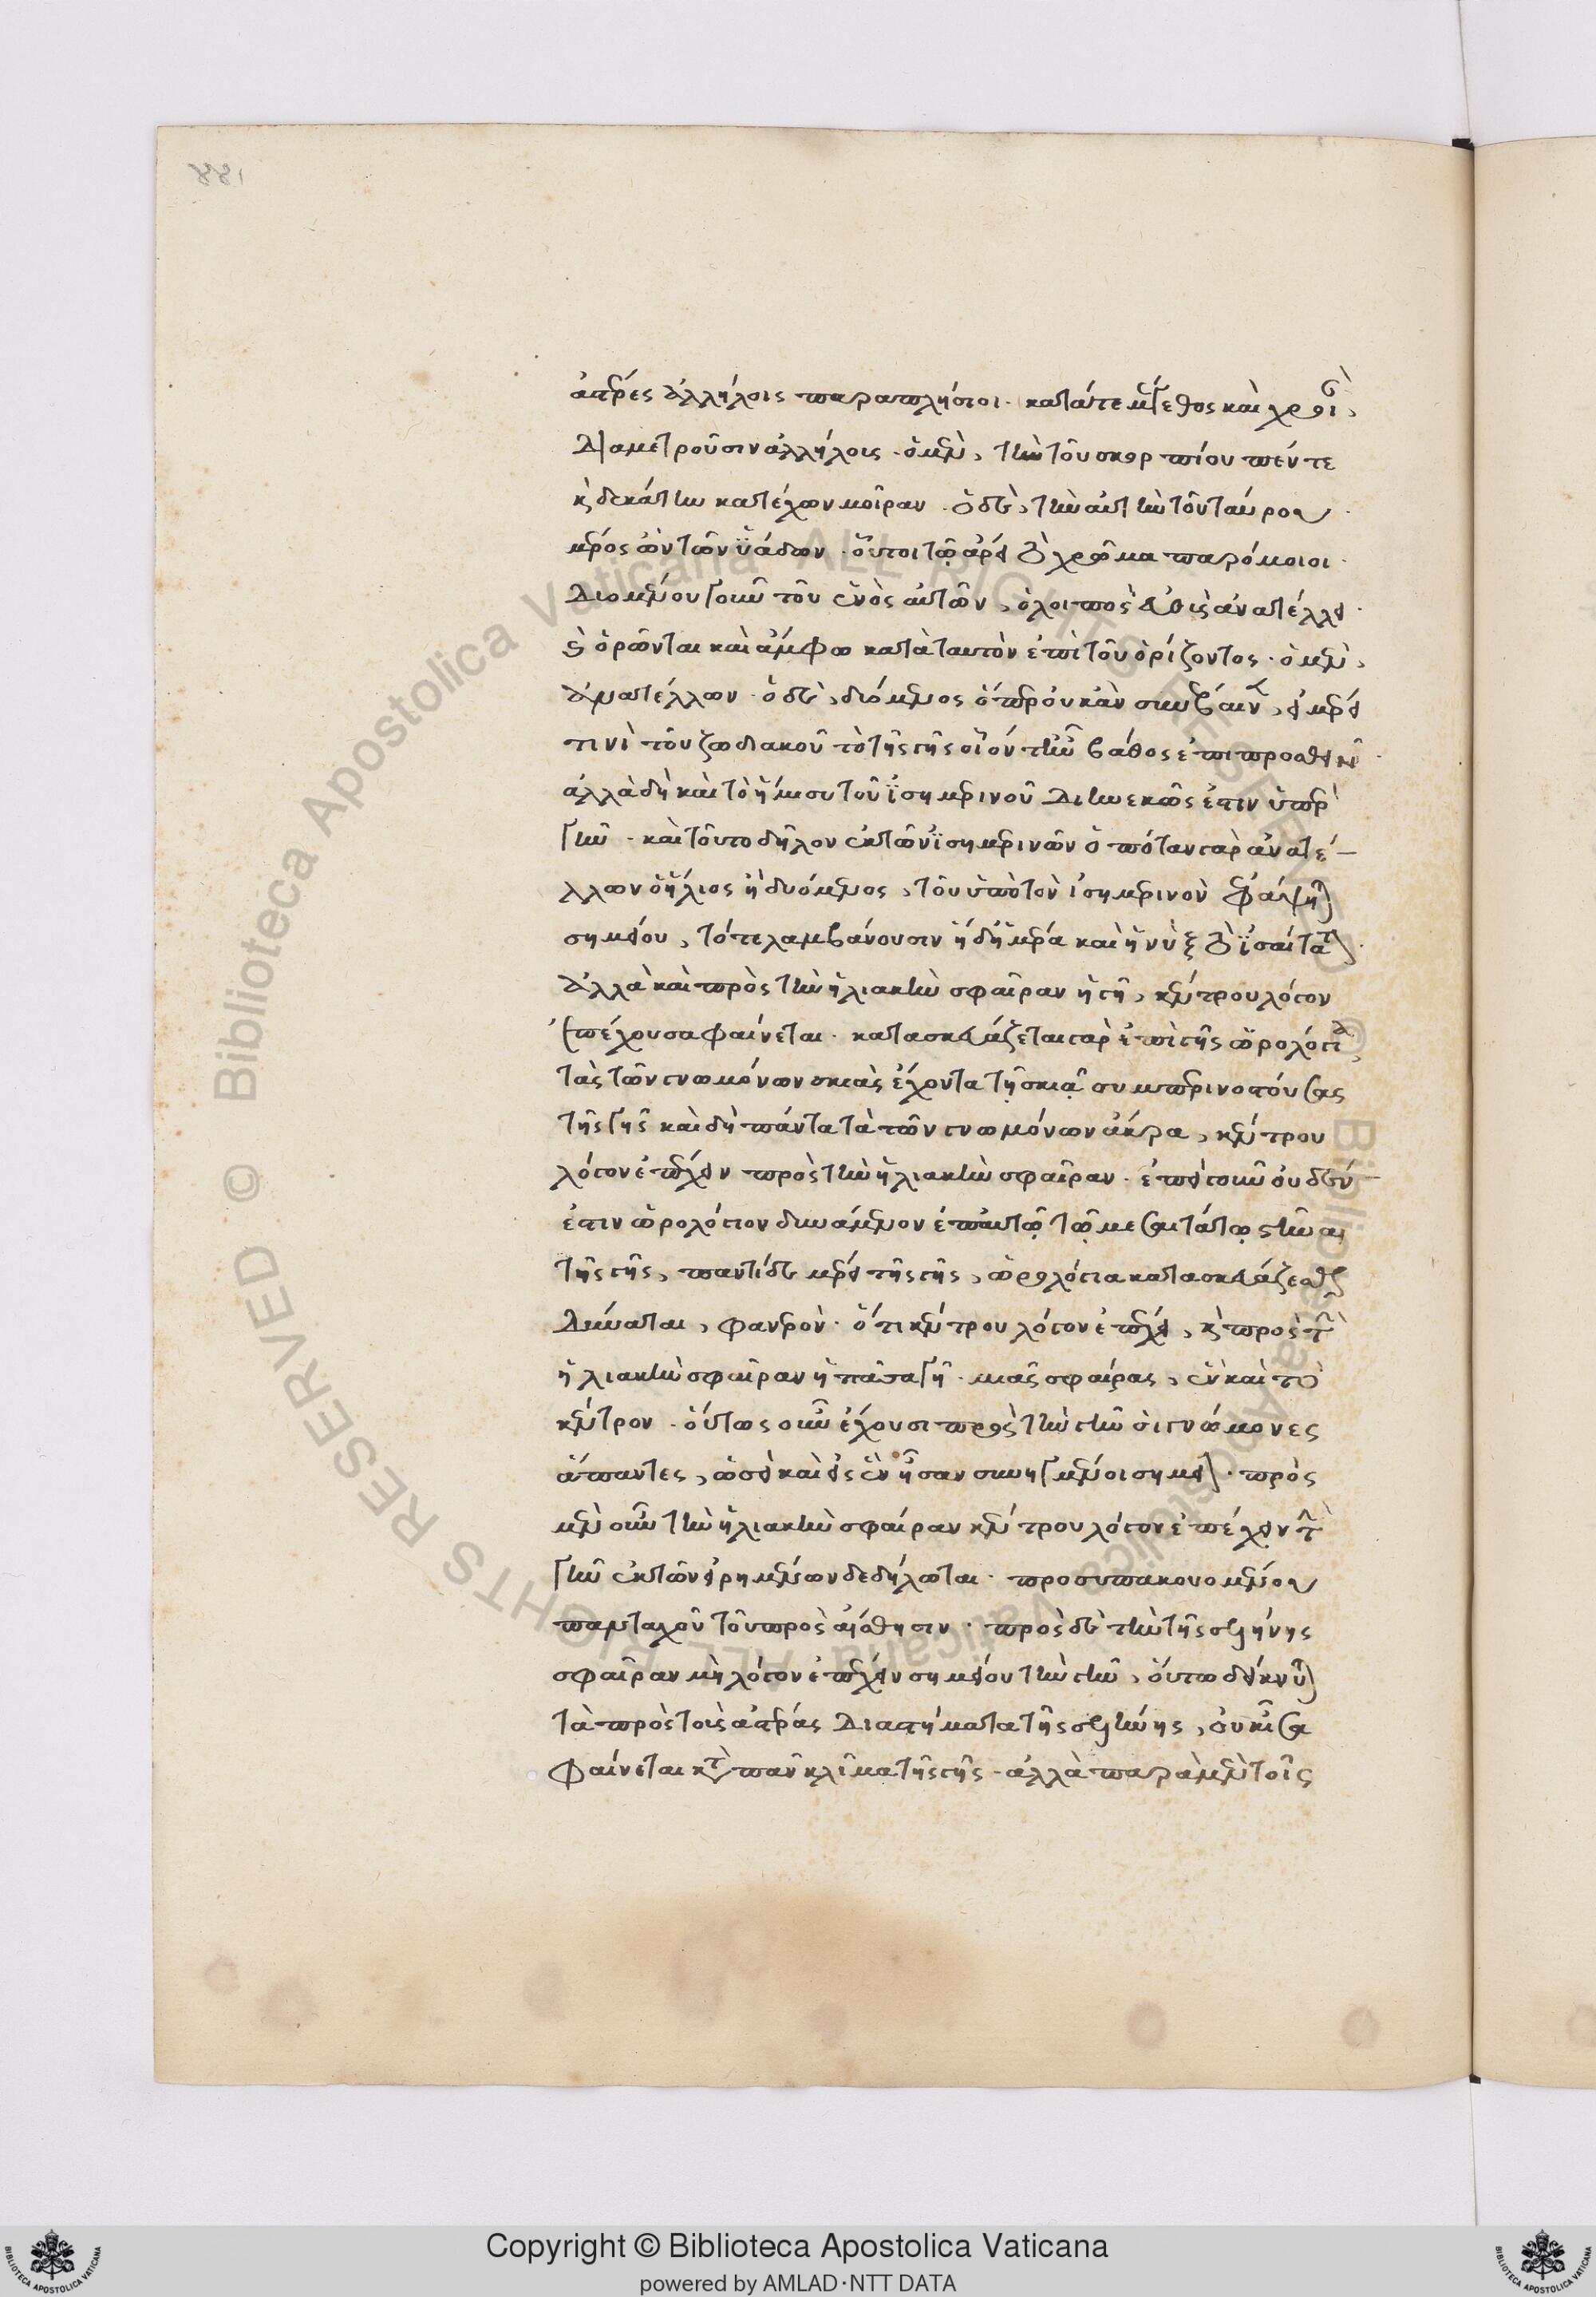 ἀστέρες ἀλλήλοις παραπλήσιοι· κατά τε μέγεθος καὶ χροιὰν,
διαμετροῦσιν ἀλλήλοις· ὁ μὲν, τὴν τοῦ σκορπίου πέντε
κỳ δεκάτην κατέχων μοῖραν· ὁ δὲ, τὴν αὐτὴν τοῦ ταύρου·
μέρος ὢν τῶν ὑάδων· οὗτοι τῷ ἄρει τὸ χρῶμα παρόμοιοι·
διομένου γοῦν τοῦ ἑνὸς αὐτῶν, ὁ λοιπὸς εὐθὺς ἀνατέλλει·
καὶ ὁρῶνται καὶ ἄμφω κατὰ ταυτὸν ἐπὶ τοῦ ὁρίζοντος· ὁ μὲν,
ἀνατέλλων· ὁ δὲ, διόμενος ὅπερ οὐκ ἂν συνέβαινεν, εἰ μέρει
τινὶ τοῦ ζωδιακοῦ τὸ τῆς γῆς οἷόν τι ἦν βάθος ἐπιπροσθεῖν·
ἀλλὰ δὴ καὶ τὸ ἥμισυ τοῦ ἰσημερινοῦ διηνεκῶς ἐστιν ὑπὲρ
γῆν· καὶ τοῦτο δῆλον ἐκ τῶν ἰσημερινῶν ὁπόταν γὰρ ἀνατέ-
λλων ὁ ἥλιος ἢ δυόμενος, τοῦ ὑπὸ τὸν ἰσημερινὸν ἐφάψηται
σημείου, τότε λαμβάνουσιν ἥ δ' ἡμέρα καὶ ἡ νὺξ τὸ ἰσαίτατον·
ἀλλὰ καὶ πρὸς τὴν ἡλιακὴν σφαῖραν ἡ γῆ, κέντρου λόγον
ἐπέχουσα φαίνεται· κατασκευάζεται γὰρ ἐπὶ γῆς ὡρολόγια,
τὰς τῶν γνωμόνων σκιὰς ἔχοντα τῇ σκιᾷ συμπερινοστούσας
τῆς γῆς καὶ δὴ πάντα τὰ τῶν γνωμόνων ἄκρα, κέντρου
λόγον ἐπέχειν πρὸς τὴν ἡλιακὴν σφαῖραν· ἐπεὶ γοῦν οὐδέν
ἐστιν ὡρολόγιον δυνάμενον ἐπ' αὐτῷ τῷ μεσαιτάτῳ στῆναι
τῆς γῆς, παντὶ δὲ μέρει τῆς γῆς, ὡρολόγια κατασκευάζεσθαι
δύναται, φανερὸν· ὅτι κέντρου λόγον ἐπέχει, κỳ πρὸς τὴν
ἡλιακὴν σφαῖραν ἡ πᾶσα γῆ· μιᾶς σφαίρας, ἓν καὶ τὸ
κέντρον· οὕτως οὖν ἔχουσι πρὸς τὴν γῆν οἱ γνώμονες
ἅπαντες, ὡσεὶ καὶ εἰς ἓν ἦσαν συνηγμένοι σημεῖον· πρὸς
μὲν οὖν τὴν ἡλιακὴν σφαίραν κέντρου λόγον ἐπέχειν τὴν
γῆν ἐκ τῶν εἰρημένων δεδήλωται· προσυπακουομένου
πανταχοῦ τοῦ πρὸς αἴσθησιν· πρὸς δὲ τὴν τῆς σελήνης
σφαῖραν μὴ λόγον ἐπέχειν σημείου τὴν γῆν, οὕτω δείκνυται
τὰ πρὸς τοὺς ἀστέρας διαστήματα τῆς σελήνης, οὐκ ἴσα
φαίνεται κατὰ πᾶν κλῖμα τῆς γῆς· ἀλλὰ παρὰ μὲν τοῖς
Copyright © Biblioteca Apostolica Vaticana
powered by AMLAD·NTT DATA